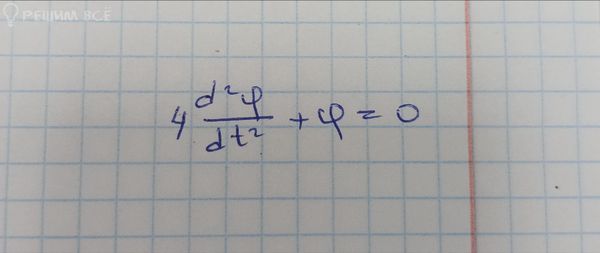 РЕШИМ ВСЁ
4 d²φ/dt² + φ = 0